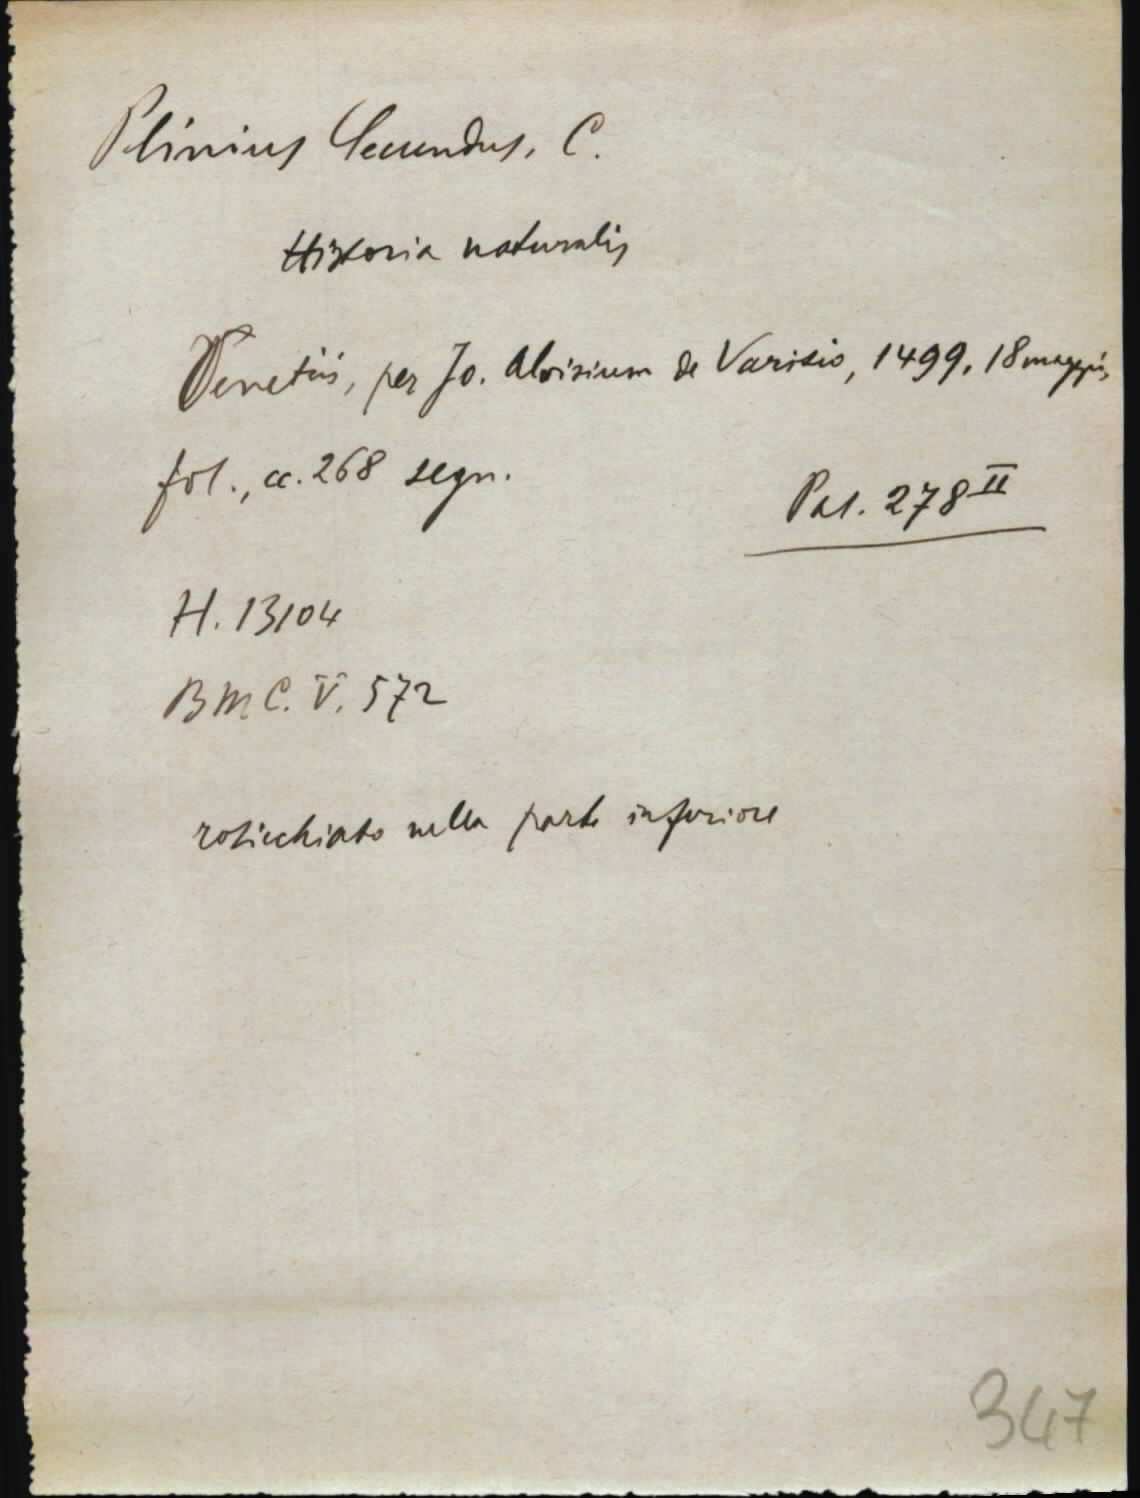 Plinius Secundus, C.
Historia naturalis
Venetiis, per Jo. Aloisium de Varisio, 1499, 18 maggio,
fol., cc. 268 segn.
Pal. 278 II
H. 13104
BMC. V. 572
rosicchiato nella parte inferiore
347